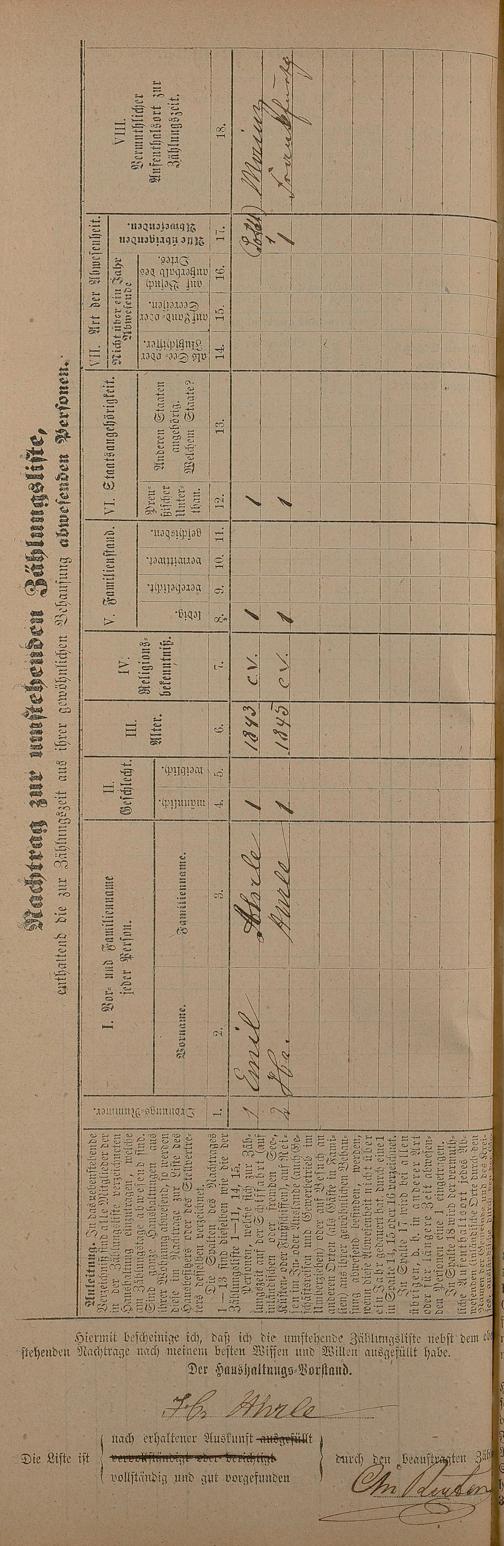 Nachtrag zur umstehenden Zählungsliste,
enthaltend die zur Zählungszeit aus ihrer gewöhnlichen Behausung abwesenden Personen.
Anleitung. In das nebenstehende
Verzeichniß sind alle Mitglieder der
in der Zählungsliste verzeichneten
Haushaltung einzutragen, welche
am Zählungstage abwesend sind.
Sind ganze Haushaltungen aus
ihrer Wohnung abwesend, so werden
diese im Nachtrage zur Liste des
Hausbesitzers oder des Stellvertre-
ters desselben verzeichnet.
Die Spalten des Nachtrages
1—13 sind dieselben wie die der
Zählungsliste 1—11, 14, 15.
Personen, welche sich zur Zäh-
lungszeit auf der Schifffahrt (auf
inländischen oder fremden See-,
Küsten- oder Flußschiffen), auf Rei-
sen im In- oder Auslande
anderen Orten (als Gäste in Fami-
lien) aus ihrer gewöhnlichen Behau-
sung abwesend befinden, werden,
wenn die Abwesenheit nicht über
ein Jahr gedauert hat, durch eine 1
in Spalte 14, 15 oder 16 verzeichnet.
In Spalte 17 wird bei allen
übrigen, d. h. in anderer Art
oder für längere Zeit abwesen-
den Personen eine 1 eingetragen.
In Spalte 18 wird der vermuth-
liche Aufenthaltsort jedes Ab-
wesenden
Ordnungs-Nummer.
I. Vor- und Familienname
jeder Person.
Vorname.
Familienname.
II.
Geschlecht.
männlich.
weiblich.
III.
Alter.
IV.
Religions-
bekenntniß.
V. Familienstand.
ledig.
verehelicht.
verwittwet.
geschieden.
VI. Staatsangehörigkeit.
Preu-
ßischer
Unter-
than.
Anderen Staaten
angehörig.
Welchem Staate?
VII. Art der Abwesenheit.
Nicht über ein Jahr
Abwesende
als See- oder
Flußschiffer.
auf Land- oder
Seereisen.
auf Besuch
außerhalb des
Ortes.
Alle übrigen
Abwesenden.
VIII.
Vermuthlicher
Aufenthaltsort zur
Zählungszeit.
1. 2. 3. 4. 5. 6. 7. 8. 9. 10. 11. 12. 13. 14. 15. 16. 17. 18.
1 Emil Ahrle 1 1843 ev. 1 1 1 Mainz
2 Hr. Ahrle 1 1845 ev. 1 1 1 Frankfurt
Hiermit bescheinige ich, daß ich die umstehende Zählungsliste nebst dem
stehenden Nachtrage nach meinem besten Wissen und Willen ausgefüllt habe.
Der Haushaltungs-Vorstand.
Hr. Ahrle
Die Liste ist
nach erhaltener Auskunft ausgefüllt
vervollständigt oder berichtigt
vollständig und gut vorgefunden
durch den beauftragten